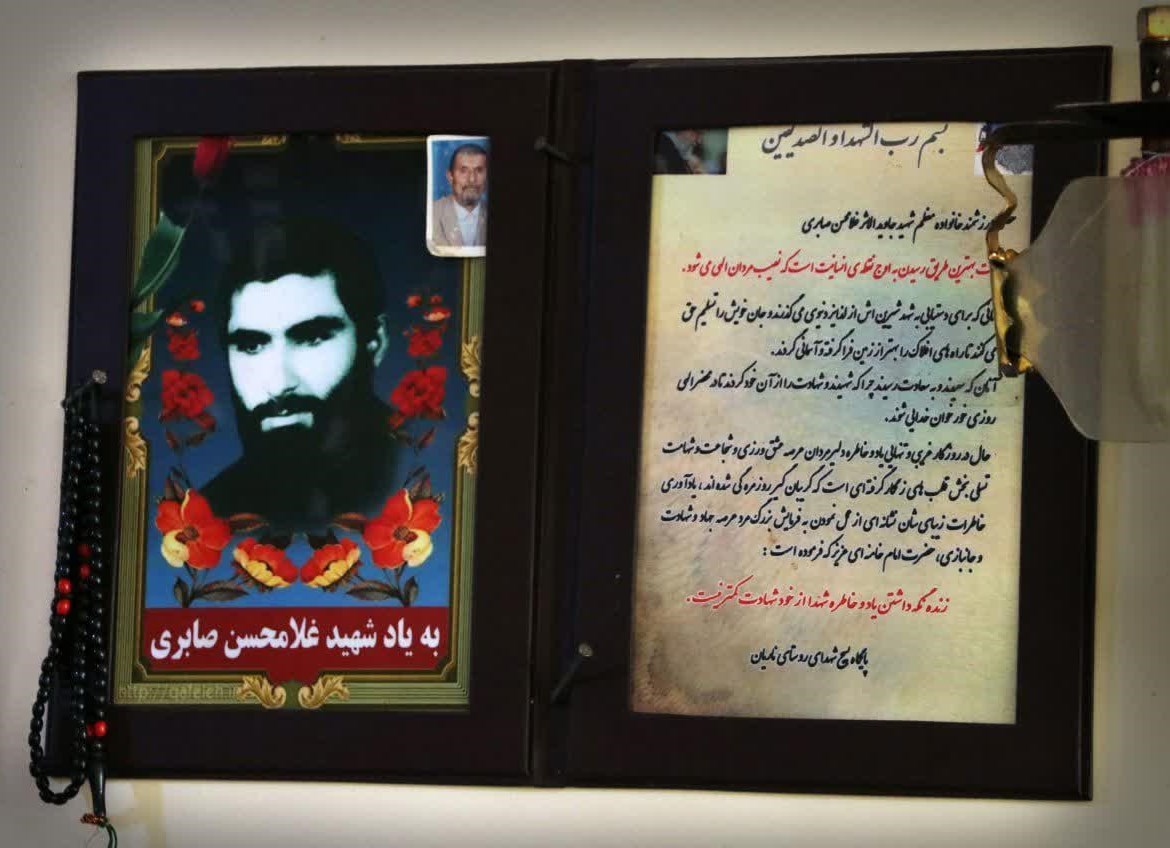 به یاد شهید غلامحسن صابری
http://qafeleh.i
بسم رب الشهدا و الصدیقین
ارزشمند خانواده معظم شهید جاوید الاثر غلامحسن صابری
بهترین طریق رسیدن به اوج نقطه ی انسانیت است که نصیب مردان الهی می شود.
که برای دستیابی به شهد شیرین اش از لذایذ دنیوی می گذرند و جان خویش را تسلیم حق
می کنند تا راه های افلاک را بهتر از زمین فرا گرفته و آسمانی گردند.
آنان که سعیدند و به سعادت رسیدند چرا که شهیدند و شهادت را از آن خود کردند تا در محضر الهی
روزی خور خوان خدایی شوند.
حال در روزگار غریبی و تنهایی یاد و خاطره دلیرمردان عرصه عشق ورزی و شجاعت و شهامت
تسلی بخش قلب های زنگار گرفته ای است که گریبان گیر روزمره گی شده اند، یادآوری
خاطرات زیبای شان نشانه ای از عمل نمودن به فرمایش بزرگ مرد عرصه جهاد و شهادت
و جانبازی، حضرت امام خامنه ای عزیز که فرموده است :
زنده نگه داشتن یاد و خاطره شهدا از خود شهادت کمتر نیست.
پایگاه بسیج شهدای روستای ناریان